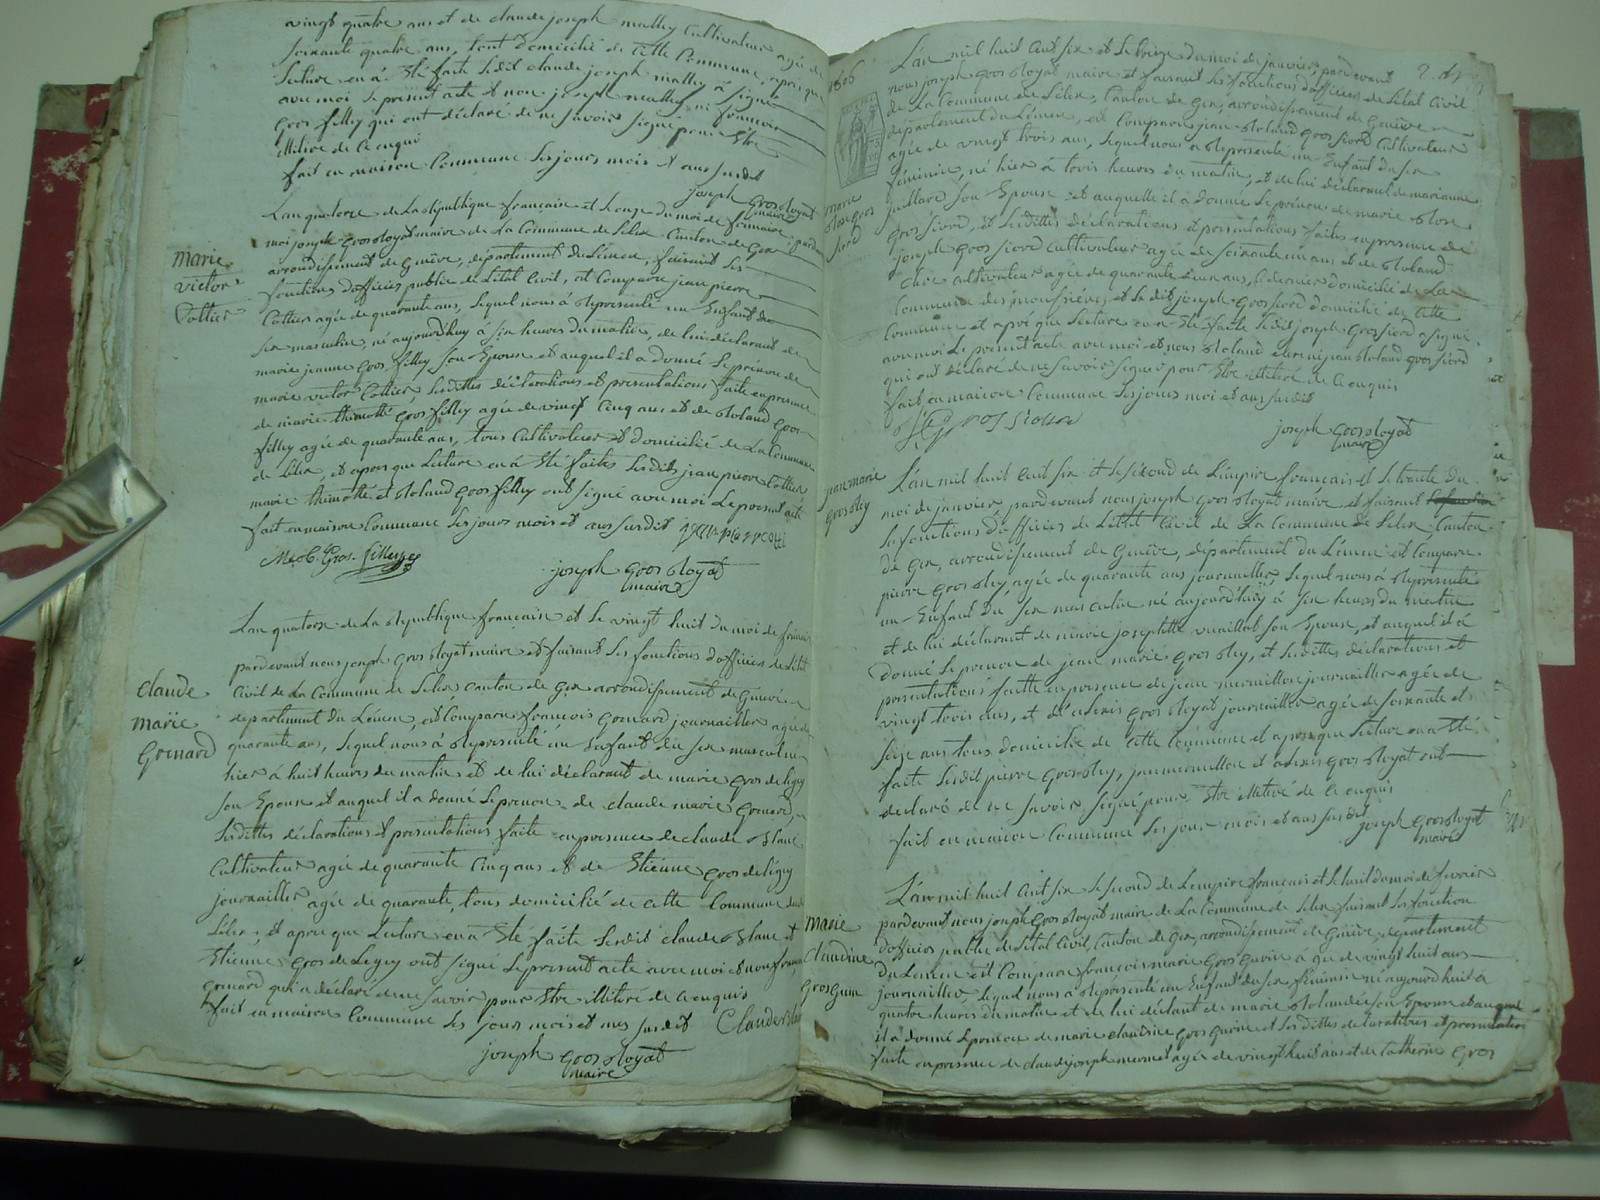 vingt quatre ans et de claude joseph mathy Cultivateur agée de
soixante quatre ans, tout domicilié de Cette Commune, aprés que
Lecture en á Eté faite Ledit claude joseph mathy á signé
avec moi Le present acte et non joseph mathy ni françois
gros filley qui ont déclaré de ne savoir signé pour Etre
illitéré de Ce enquis
fait en maison Commune Les jours mois et ans susdit
joseph gros Royat
maire
marie
victor
Cottier
L'an quatorze de La République française et Le onze du moi de frimaire pardevant
moi joseph gros Royat maire de La Commune de Lelex Canton de Gex
arrondissement de Genève, département du Léman, faisant Les
fonctions d'officier public de L'état Civil, est Comparu jean pierre
Cottier agée de quarante ans, Lequel nous á Représenté un Enfant du
sex masculin, né aujourd'huy á six heures du matin, de lui déclarant de
marie jeanne gros filley son Epouse et auquel il a donné Le prénom de
marie victor Cottier, Lesdittes déclarations et présentations faite en presence
de marie thimotté gros filley agée de vingt Cinq ans et de Roland gros
filley agée de quarante ans, tous Cultivateur et domicilié de La Commune
de Lelex, et apres que Lecture en á Eté faites Lesdits jean pierre Cottier
marie thimotté et Roland gros filley ont signé avec moi Le present acte
fait en maison Commune Les jours mois et ans susdit jean pierre Cotti
M. t. Gros-filley
joseph gros Royat
maire
claude
marie
Gonnard
L'an quatorze de La République française et Le vingt huit du moi de frimaire
pardevant nous joseph gros Royat maire et faisant Les fonctions d'officier de L'état
Civil de La Commune de Lelex canton de Gex arrondissement de Genève
département du Léman, est Comparu françois Gonnard journaillier agée de
quarante ans, Lequel nous á Representé un Enfant du sex masculin
hier á huit heures du matin et de lui déclarant de marie gros deligny
son Epouse et auquel il a donné Le prenom de claude marie Gonnard,
Lesdittes déclarations et presentations faite en presence de claude
Cultivateur agée de quarante Cinq ans et de Etienne gros de Légny
journaillier agée de quarante, tous domicilié de cette Commune de
Lelex, et apres que Lecture en á Eté faite Lesdit claude et
Etienne gros de Legny ont signé Le present acte avec moi et non françois
Gonnard qui a déclaré de ne savoir pour Etre illitéré de Ce enquis
fait en maison Commune Les jours mois et ans susdit
joseph gros Royat
maire
1806
marie
Rose gros
fiord
L'an mil huit Cent six et Le treize du moi de janvier, pardevant
nous joseph gros Royat maire et faisant Les fonctions d'officier de L'état Civil
de La Commune de Lelex, Canton de Gex, arrondissement de Genève
département du Léman, est Comparu jean Roland gros fiord Cultivateur
agée de vingt trois ans, Lequel nous á Représenté un Enfant du sex
féminin, né hier á trois heures du matin, et de lui déclarant de marianne
juillard son Epouse et auquelle il á donné Le prénom de marie Rose
gros fiord, et Lesdittes déclarations et presentations faites en presence de
joseph gros fiord cultivateur agée de soixante un ans et de Roland
cultivateur agée de quarante deux ans, Le dernier domicilié de La
Commune des mousfrières, et Ledit joseph gros fiord domicilié de Cette
Commune et aprés que Lecture en a Eté faite Ledit joseph gros fiord a signé
avec moi Le present acte avec moi et non Roland ni jean Roland gros fiord
qui ont déclaré de ne savoir signer pour Etre illitéré de Ce enquis
fait en maison Commune Les jours moi et ans susdit
joseph gros Royat
maire
jean marie
gros Rey
L'an mil huit Cent six et Le second de L'empire français et Le trente du
moi de janvier, pardevant nous joseph gros Royat maire et faisant
Les fonctions d'officier de L'état Civil de La Commune de Lelex, Canton
de Gex, arrondissement de Genève, département du Léman est Comparu
pierre gros Rey agée de quarante ans journaillier, Lequel nous á Représenté
un Enfant du sex masculin né aujourd'huy á six heures du matin
et de lui déclarant de marie josephette vuaillat son Epouse, et auquel il á
donné Le prenom de jean marie gros Rey, et Lesdittes déclarations et
presentations faitte en presence de jean mermillon journaillier agée de
vingt trois ans, et d'alexis gros Royat journaillier agée de soixante et
seize ans tous domicilié de Cette Commune et apres que Lecture en a été
faite Lesdit pierre gros Rey, jean mermillon et alexis gros Royat ont
declaré de ne savoir signé pour Etre illitéré de Ce enquis
fait en maison Commune Les jour mois et ans susdit
joseph gros Royat
maire
Marie
Claudine
Gros Gurin
L'an mil huit Cent six Le second de L'empire français et Le huit du moi de fevrier
pardevant nous joseph gros Royat maire de La Commune de Lelex faisant Les fonction
d'officier public de L'état Civil, Canton de Gex, arrondissement de Genève, département
du Léman est Comparu françois marie gros gurin á gée de vingt huit ans
journaillier, Lequel nous á Représenté un Enfant du sex féminin né aujourd'huit á
quatre heures du matin et de lui déclarant de marie Rolandéz son Epouse et auquel
il á donné Le prénom de marie claudine gros gurin et Lesdittes declarations et presentation
faite en presence de claude joseph mermet agée de vingt huit ans et de Catherine gros